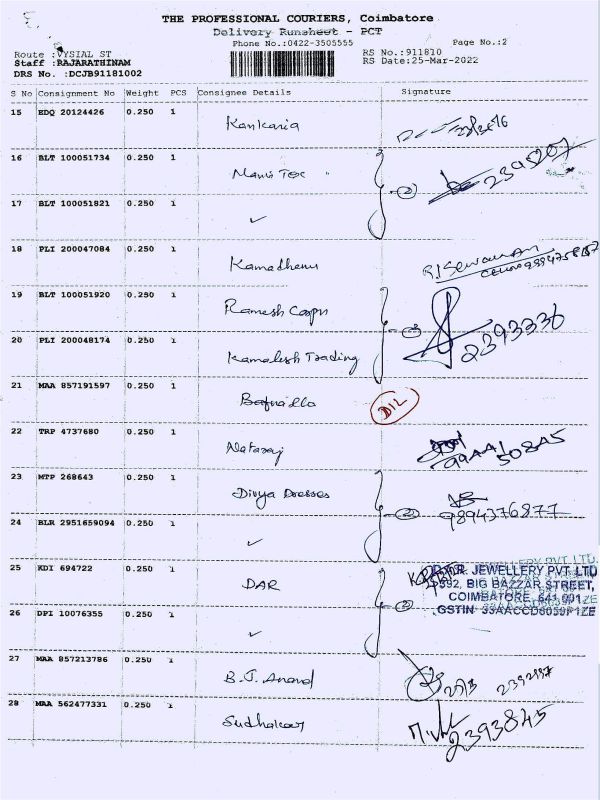 THE PROFESSIONAL COURIERS, Coimbatore
Delivery Runsheet - PCT
Phone No.:0422-3505555 Page No.:2
Route :VYSIAL ST RS No.:911810
Staff :RAJARATHINAM RS Date:25-Mar-2022
DRS No. :DCJB91181002
S No Consignment No Weight PCS Consignee Details Signature
15 EDQ 20124426 0.250 1 Kankaria
16 BLT 100051734 0.250 1 2
17 BLT 100051821 0.250 1 ✓
18 PLI 200047084 0.250 1 Kamadhenu
19 BLT 100051920 0.250 1 Ramesh Corpn
20 PLI 200048174 0.250 1 Kamalesh Trading 2393336
21 MAA 857191597 0.250 1 D12
22 TRP 4737680 0.250 1 Nataraj
23 MTP 268643 0.250 1 Divya Dresses 2 9894376877
24 BLR 2951659094 0.250 1 ✓
25 KDI 694722 0.250 1 DAR JEWELLERY PVT LTD
592, BIG BAZZAR STREET,
COIMBATORE, 641 001
26 DPI 10076355 0.250 1 ✓ 2 GSTIN
27 MAA 857213786 0.250 1 B.J. Anand
28 MAA 562477331 0.250 1 Sudhakar 2393845